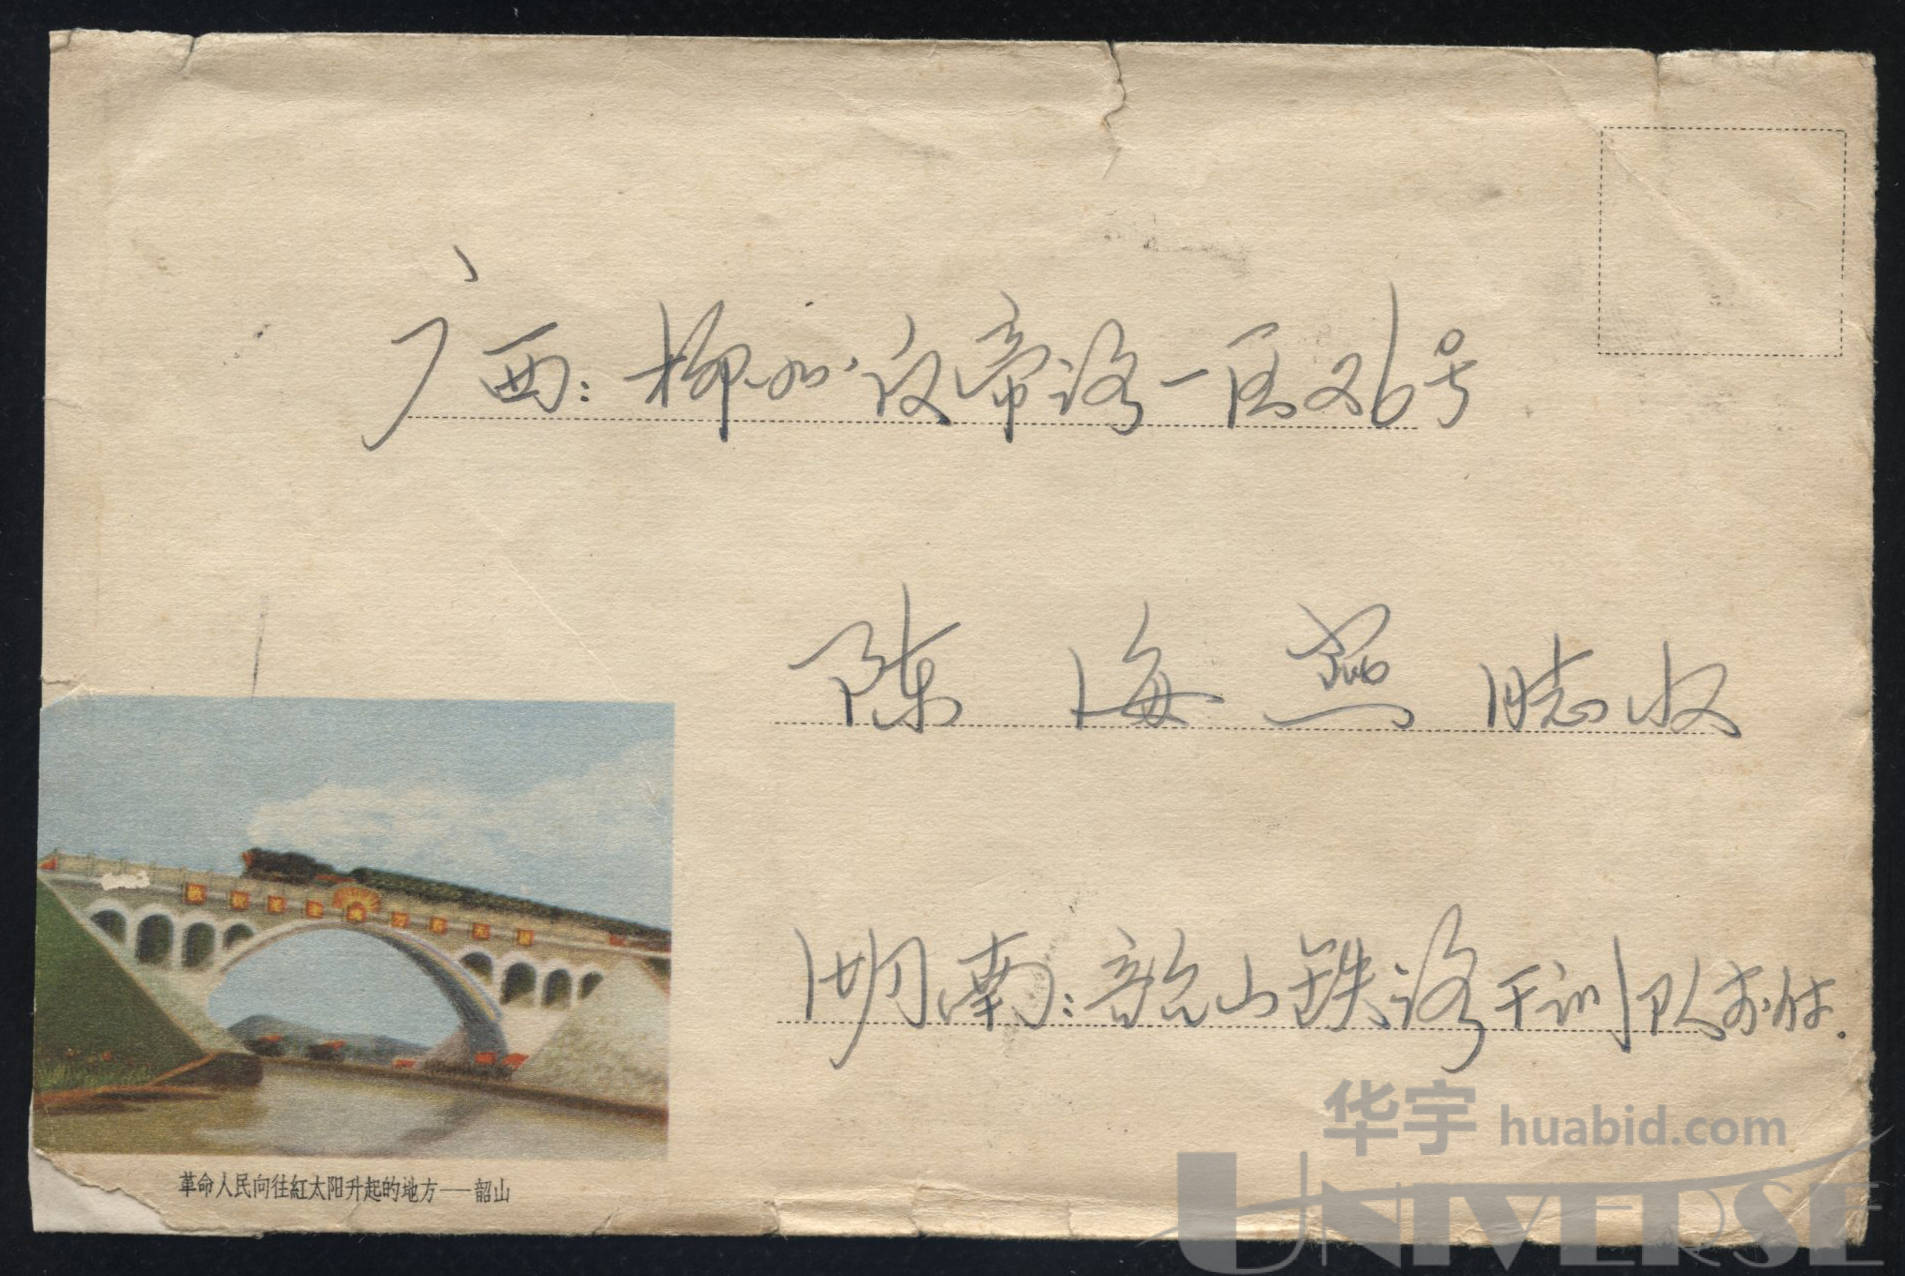 广西：柳州反帝路一区26号
陈海燕同志收
湖南：韶山铁路干训队
革命人民向往紅太阳升起的地方——韶山
华宇 huabid.com
UNIVERSE